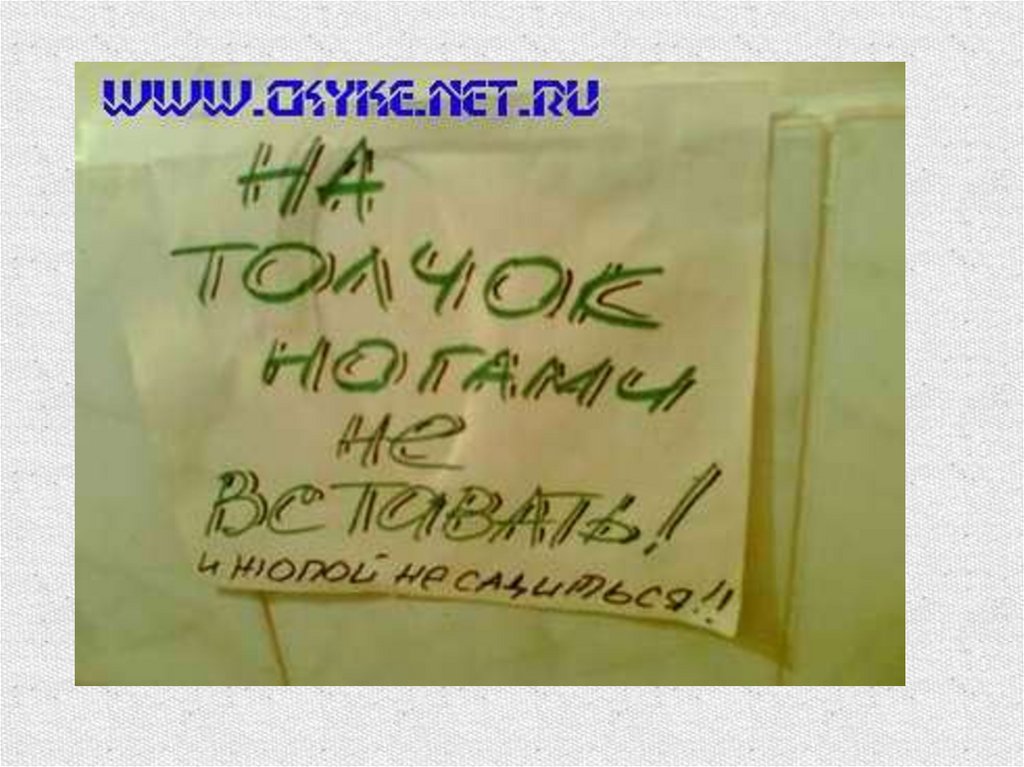 WWW.CKYKE.NET.RU
НА
ТОЛЧОК
НОГАМИ
НЕ
ВСТАВАТЬ!
И ЖОПОЙ НЕ САДИТЬСЯ!!